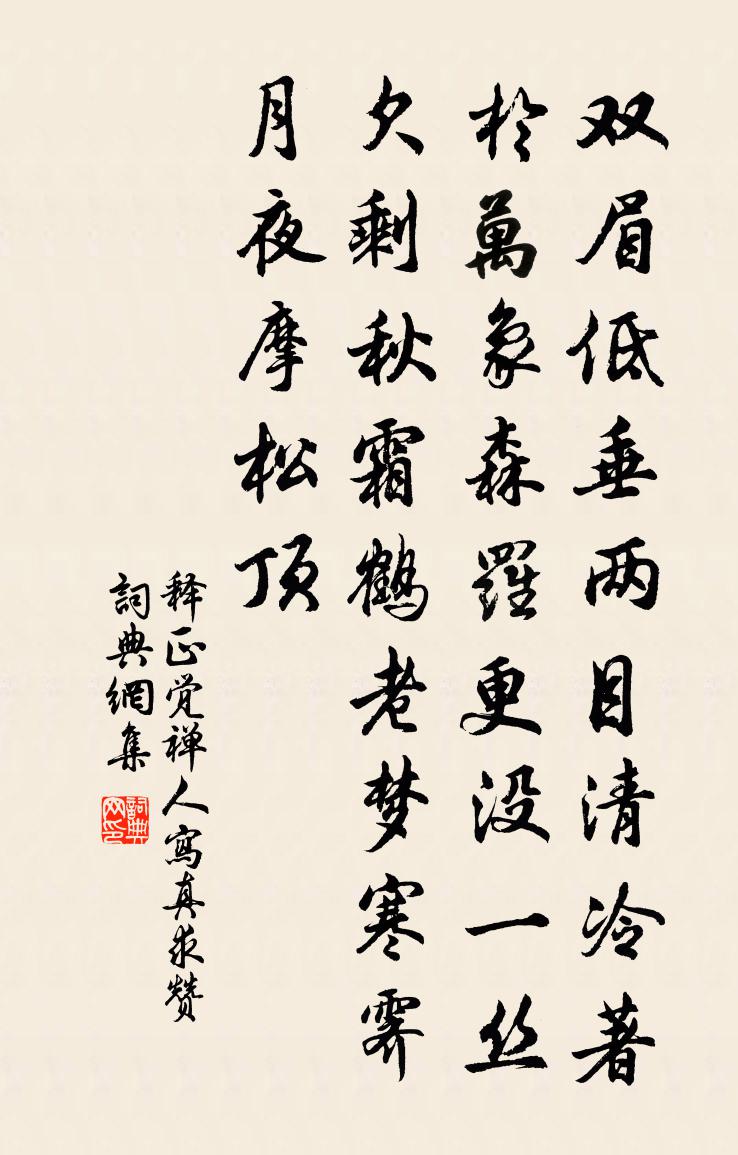 双眉低垂两目清冷著
於萬象森羅更没一丝
欠剩秋霜鹤老梦寒霁
月夜摩松顶
释正觉禅人寫真求赞
詞典網集
詞典网印